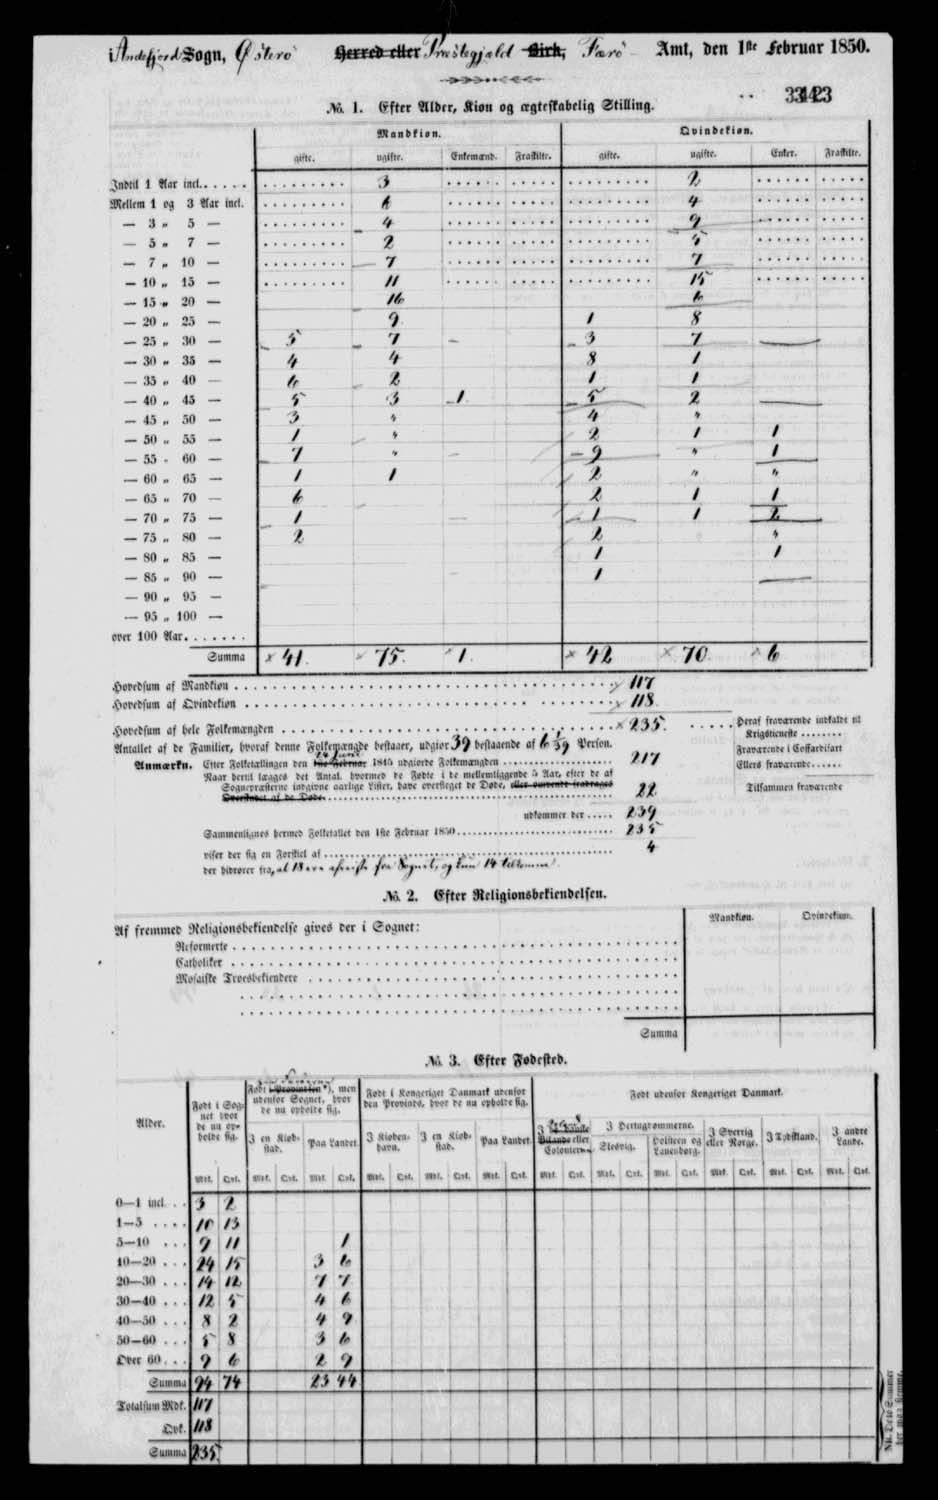 i Andefjord Sogn, Østerø Herred eller Præstegjæld Birk, Færø Amt, den 1ste Februar 1850.
No. 1. Efter Alder, Kion og ægteskabelig Stilling.
Mandkion. Qvindekion.
gifte. ugifte. Enkemænd. Fraskilte. gifte. ugifte. Enker. Fraskilte.
Indtil 1 Aar incl. 3 2
Mellem 1 og 3 Aar incl. 6 4
— 3 „ 5 — 4 9
— 5 „ 7 — 2 5
— 7 „ 10 — 7 7
— 10 „ 15 — 11 15
— 15 „ 20 — 16 6
— 20 „ 25 — 9 1 8
— 25 „ 30 — 5 7 3 7
— 30 „ 35 — 4 4 8 1
— 35 „ 40 — 6 2 1 1
— 40 „ 45 — 5 3 1 5 2
— 45 „ 50 — 3 „ 4 „
— 50 „ 55 — 1 „ 2 1 1
— 55 „ 60 — 7 „ 9 „ 1
— 60 „ 65 — 1 1 2 „ „
— 65 „ 70 — 6 2 1 1
— 70 „ 75 — 1 1 1 2
— 75 „ 80 — 2 2 „
— 80 „ 85 — 1 1
— 85 „ 90 — 1
— 90 „ 95 —
— 95 „ 100 —
over 100 Aar.
Summa 41. 75. 1. 42 70. 6
Hovedsum af Mandkion 117
Hovedsum af Qvindekion 118
Hovedsum af hele Folkemængden 235. Heraf fraværende indkaldt til
Krigstieneste
Antallet af de Familier, hvoraf denne Folkemængde bestaaer, udgior 39 bestaaende af 6 1/39 Person. Fraværende i Coffardifart
Anmærkn. Efter Folketællingen den 1ste Februar 1845 udgiorde Folkemængden 217 Ellers fraværende
Naar hertil lægges det Antal, hvormed de Fødte i de mellemliggende 5 Aar, efter de af
Sognepræsterne indgivne aarlige Lister, have oversteget de Døde, eller omvendt fradrages
Overskudet af de Døde 22 Tilsammen fraværende
udkommer der 239
Sammenlignes hermed Folketallet den 1ste Februar 1850 235
viser der sig en Forskiel af 4
der hidrører fra, at 18 ere afreiste fra Sognet, og kun 14 tilkomne.
No. 2. Efter Religionsbekiendelsen.
Mandkion. Qvindekion.
Af fremmed Religionsbekiendelse gives der i Sognet:
Reformerte
Catholiker
Mosaiske Troesbekiendere
Summa
No. 3. Efter Fødested.
Alder. Født i Sognet hvor de nu opholde sig. Født i Provindsen*), men udenfor Sognet, hvor de nu opholde sig. Født i Kongeriget Danmark udenfor den Provinds, hvor de nu opholde sig. Født udenfor Kongeriget Danmark.
I en Kiøbstad. Paa Landet. I Kiøbenhavn. I en Kiøbstad. Paa Landet. I Hertugdømmerne. Slesvig. Holsteen og Lauenborg. I Sverrig eller Norge. I Tydskland. I andre Lande.
Mk. Qvk. Mk. Qvk. Mk. Qvk. Mk. Qvk. Mk. Qvk. Mk. Qvk. Mk. Qvk. Mk. Qvk. Mk. Qvk. Mk. Qvk. Mk. Qvk. Mk. Qvk.
0—1 incl. 3 2
1—5 10 13
5—10 9 11 1
10—20 24 15 3 6
20—30 14 12 7 7
30—40 12 5 4 6
40—50 8 2 4 9
50—60 5 8 3 6
Over 60 9 6 2 9
Summa 94 74 23 44
Totalsum Mdk. 117
Qvk. 118
Summa 235.